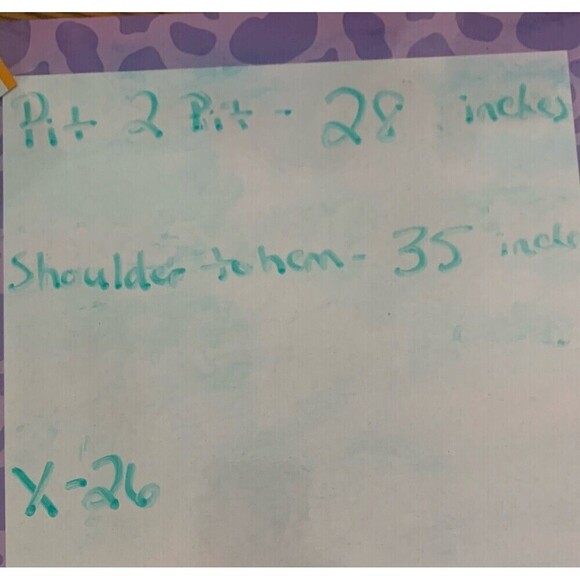 Pit 2 Pit - 28 inches
Shoulder to hem - 35 inche
X - 26